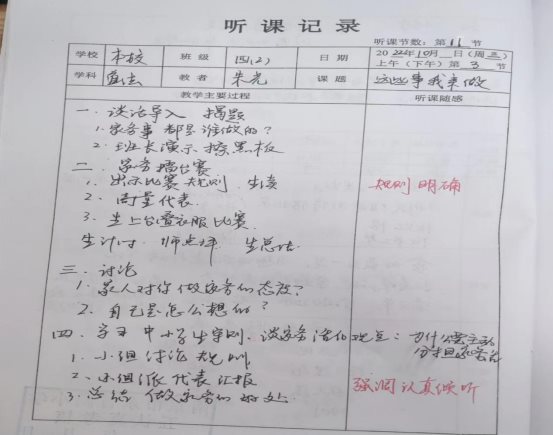 听课记录
听课节数：第 11 节
学校 本校 班级 四(2) 日期 2022年10月 日(周三)
上午(下午)第 3 节
学科 道法 教者 朱光 课题 这些事我来做
教学主要过程 听课随感
一. 谈话导入 揭题
1. 家务事都是谁做的?
2. 班长演示擦黑板
二. 家务擂台赛
1. 出示比赛规则 生读 规则明确
2. 商量代表
3. 生上台叠衣服比赛
生计时 师点评 生总结
三. 讨论
1. 家人对你做家务的态度?
2. 自己是怎么想的?
四. 学习中小学生守则、谈家务活的观点: 为什么要主动
分担家务活
1. 小组讨论规则
2. 小组派代表汇报 强调认真倾听
3. 总结 做家务的好处